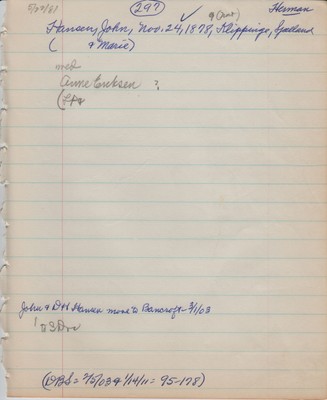 5/30/61 297 Herman
& (Aunt)
Hansen, John, Nov. 24, 1878, Klippinge, Sjelland
(& Marie)
md
Anne Ericksen ?
John & DH Hansen move to Bancroft - 3/1/03
(DBS = 2/5/03 & 1/14/11 = 95-178)